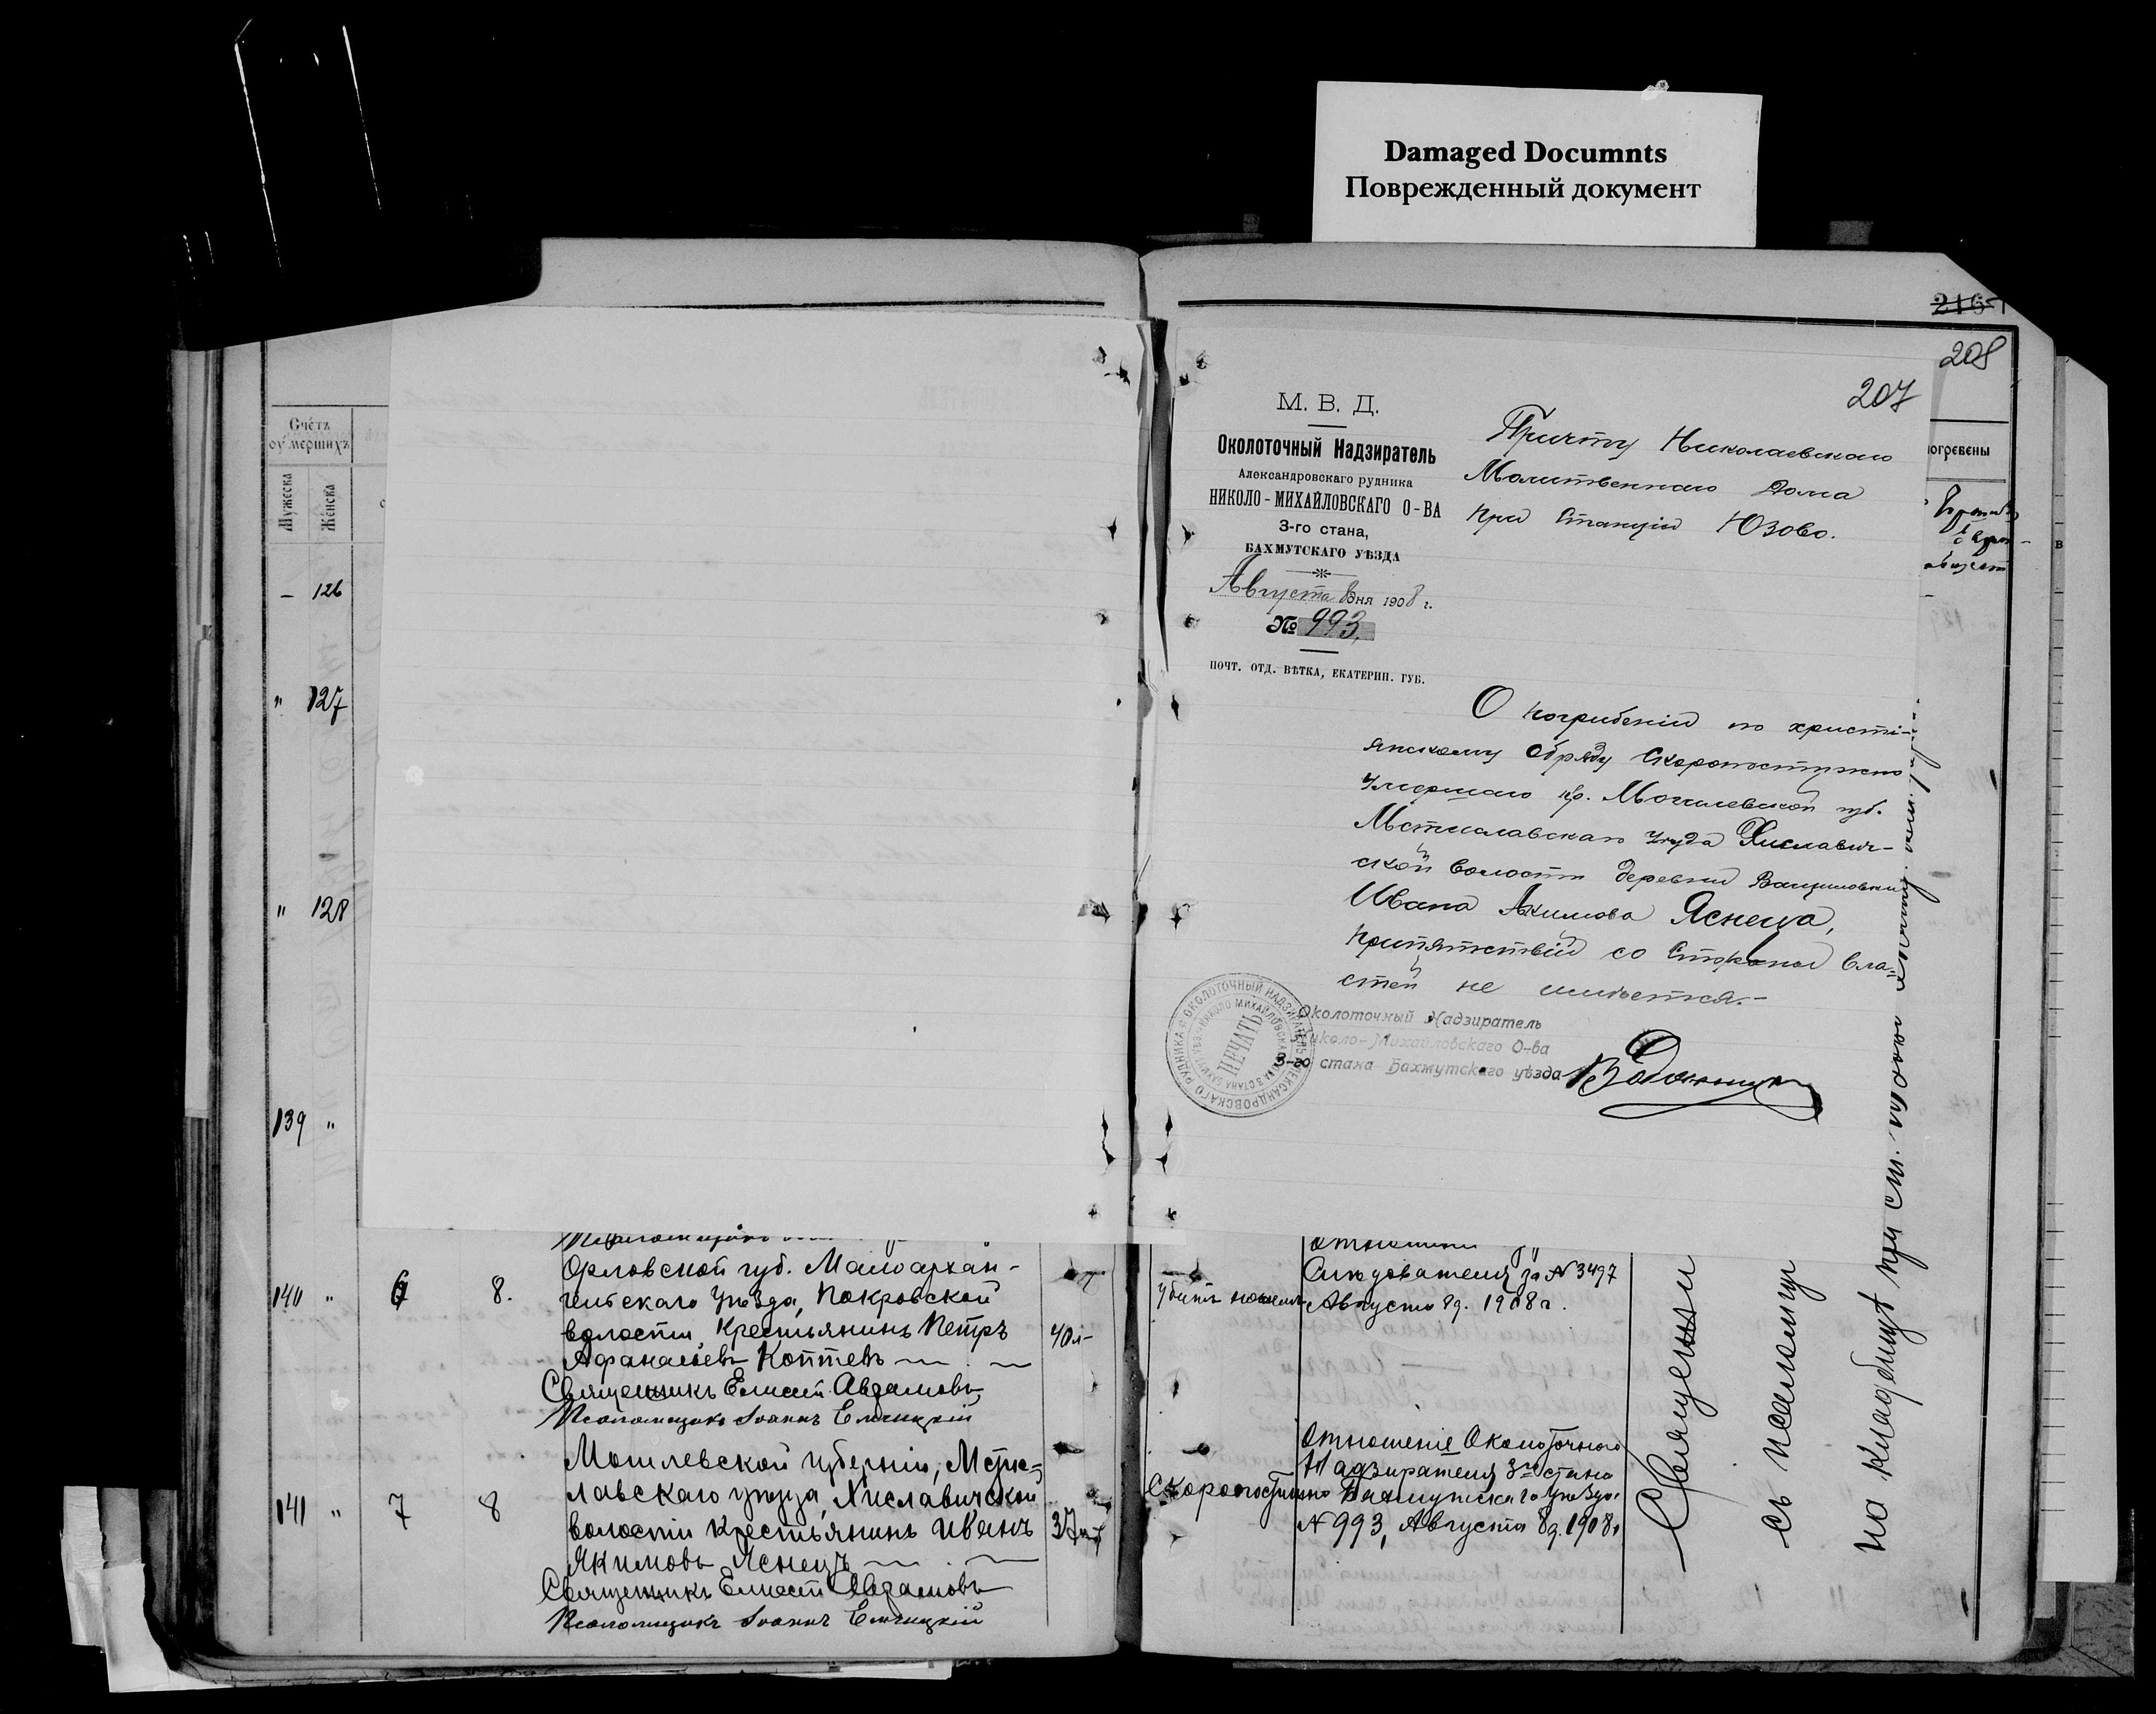 Damaged Documnts
Поврежденный документ
2165
208
207
Счётъ
оумершихъ
Мужеска
Женска
огребены
М. В. Д.
Околоточный Надзиратель
Александровскаго рудника
НИКОЛО-МИХАЙЛОВСКАГО О-ВА
3-го стана,
БАХМУТСКАГО УѢЗДА
Августа 8 дня 1908 г.
№ 993,
ПОЧТ. ОТД. ВѢТКА, ЕКАТЕРИН. ГУБ.
Причту Николаевскаго
Молитвеннаго Дома
при Станціи Юзово.
О погребеніи по христі-
янскому обряду скоропостижно
умершаго кр. Могилевской губ.
Мстиславскаго уѣзда Хиславич-
ской волости деревни
Ивана Акимова Яснеца,
препятствій со Стороны вла-
стей не имѣется.-
Околоточный Надзиратель
Николо-Михайловскаго О-ва
3-го стана Бахмутскаго уѣзда
ПЕЧАТЬ
– 126
" 127
" 128
139 "
140 " 6 8.
Орловской губ. Малоархан-
гельскаго уѣзда, Покровской
волости, Крестьянинъ Петръ
Афанасьевъ Коптевъ
40 л-
Священникъ Елисей Авдамовъ
Псаломщикъ Іоаннъ Емчицкій
убитъ
Слѣдователя за № 3497
Августа 8 д. 1908 г.
141 " 7 8
Могилевской губерніи, Мсти-
лавскаго уѣзда, Хиславичской
волости Крестьянинъ Иванъ
Якимовъ Яснецъ
37
Священникъ Елисей Авдамовъ
Псаломщикъ Іоаннъ Емчицкій
Скоропостижно
Отношеніе Околоточнаго
Надзирателя 3го стана
Бахмутскаго уѣзда
№ 993, Августа 8 д. 1908 г.
Священни
съ псаломщи
на кладбищѣ при ст.